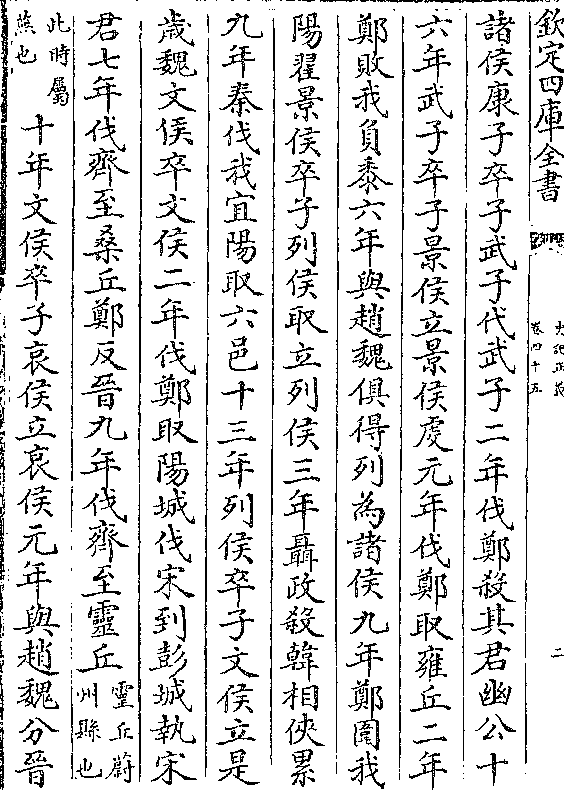 欽定四庫全書
史記正義
卷四十五
二
諸侯康子卒子武子代武子二年伐鄭殺其君幽公十
六年武子卒子景侯立景侯虔元年伐鄭取雍丘二年
鄭敗我負黍六年與趙魏俱得列為諸侯九年鄭圍我
陽翟景侯卒子列侯取立列侯三年聶政殺韓相俠累
九年秦伐我宜陽取六邑十三年列侯卒子文侯立是
歲魏文侯卒文侯二年伐鄭取陽城伐宋到彭城執宋
君七年伐齊至桑丘鄭反晉九年伐齊至靈丘靈丘蔚州縣也
此時屬燕也十年文侯卒子哀侯立哀侯元年與趙魏分晉